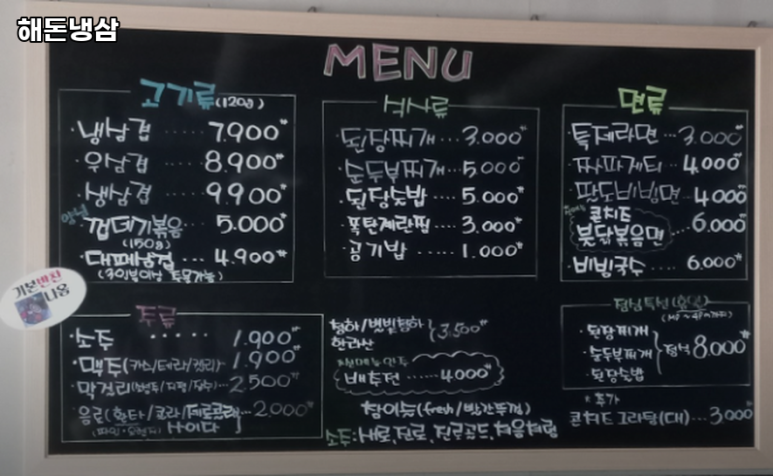 해돈냉삼
MENU
고기류(120g)
·냉삼겹 ····· 7.900원
·우삼겹 ····· 8.900원
·생삼겹 ····· 9.900원
양념
·껍데기볶음 ····· 5.000원
(150g)
·대패삼겹 ···· 4.900원
(3인분이상 주문가능)
식사류
·된장찌개 ··· 3.000원
·순두부찌개 ··· 5.000원
·된장술밥 ··· 5.000원
·폭탄계란찜 ··· 3.000원
·공기밥 ··· 1.000원
면류
·특제라면 ··· 3.000원
·짜파게티 ··· 4.000원
·팔도비빔면 ··· 4.000원
콘치즈
불닭볶음면 ··· 6.000원
·비빔국수 ···· 6.000원
기본반찬
나옹
주류
·소주 ····· 1.900원
·맥주(카스/테라/켈리) ··· 1.900원
·막걸리 ··· 2.500원
음료(환타/콜라/제로콜라 ··· 2.000원
사이다
청하/별빛청하
한라산 } 3.500원
배추전 ······ 4.000원
참이슬(fresh/빨간뚜껑)
소주: 새로, 진로, 진로골드, 처음처럼
점심특선
·된장찌개
·순두부찌개 } 정식 8.000원
·된장술밥
*추가
콘치즈 그라탕(대) ··· 3.000원